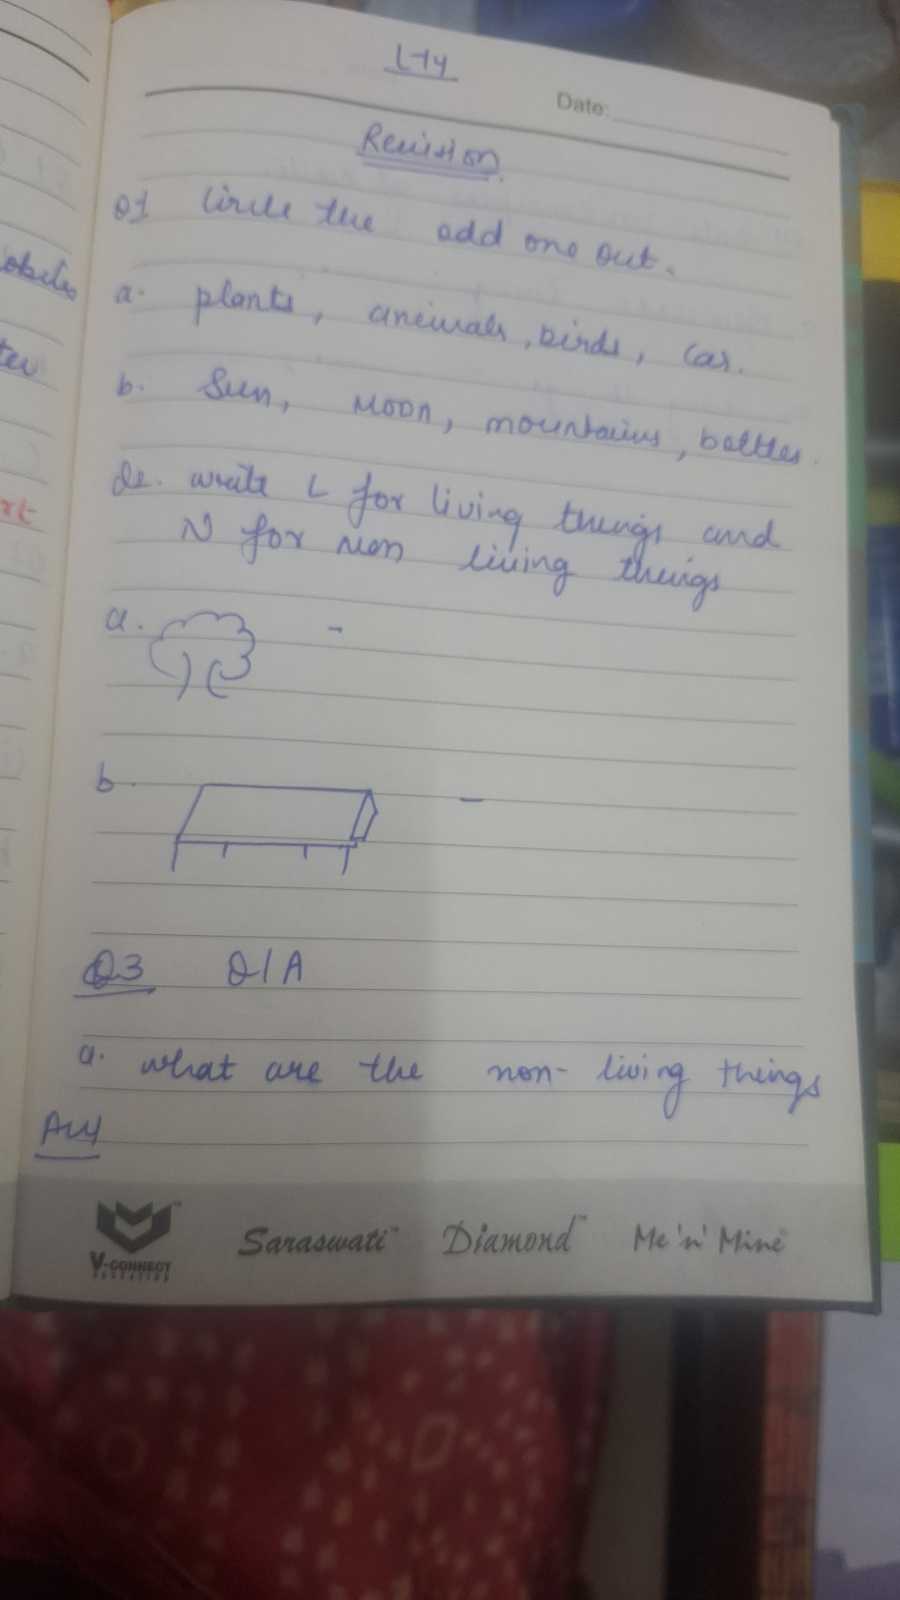 L-14
Date:
Revision.
Q1 Circle the odd one out.
a. plants, animals, birds, car.
b. Sun, Moon, mountains, bottles.
Q2. write L for living things and
N for Non living things
a. -
b. -
Q3 Q/A
a. what are the non-living things
Ans
V-CONNECT
EDUCATION
Saraswati™ Diamond™ Me 'n' Mine
rt